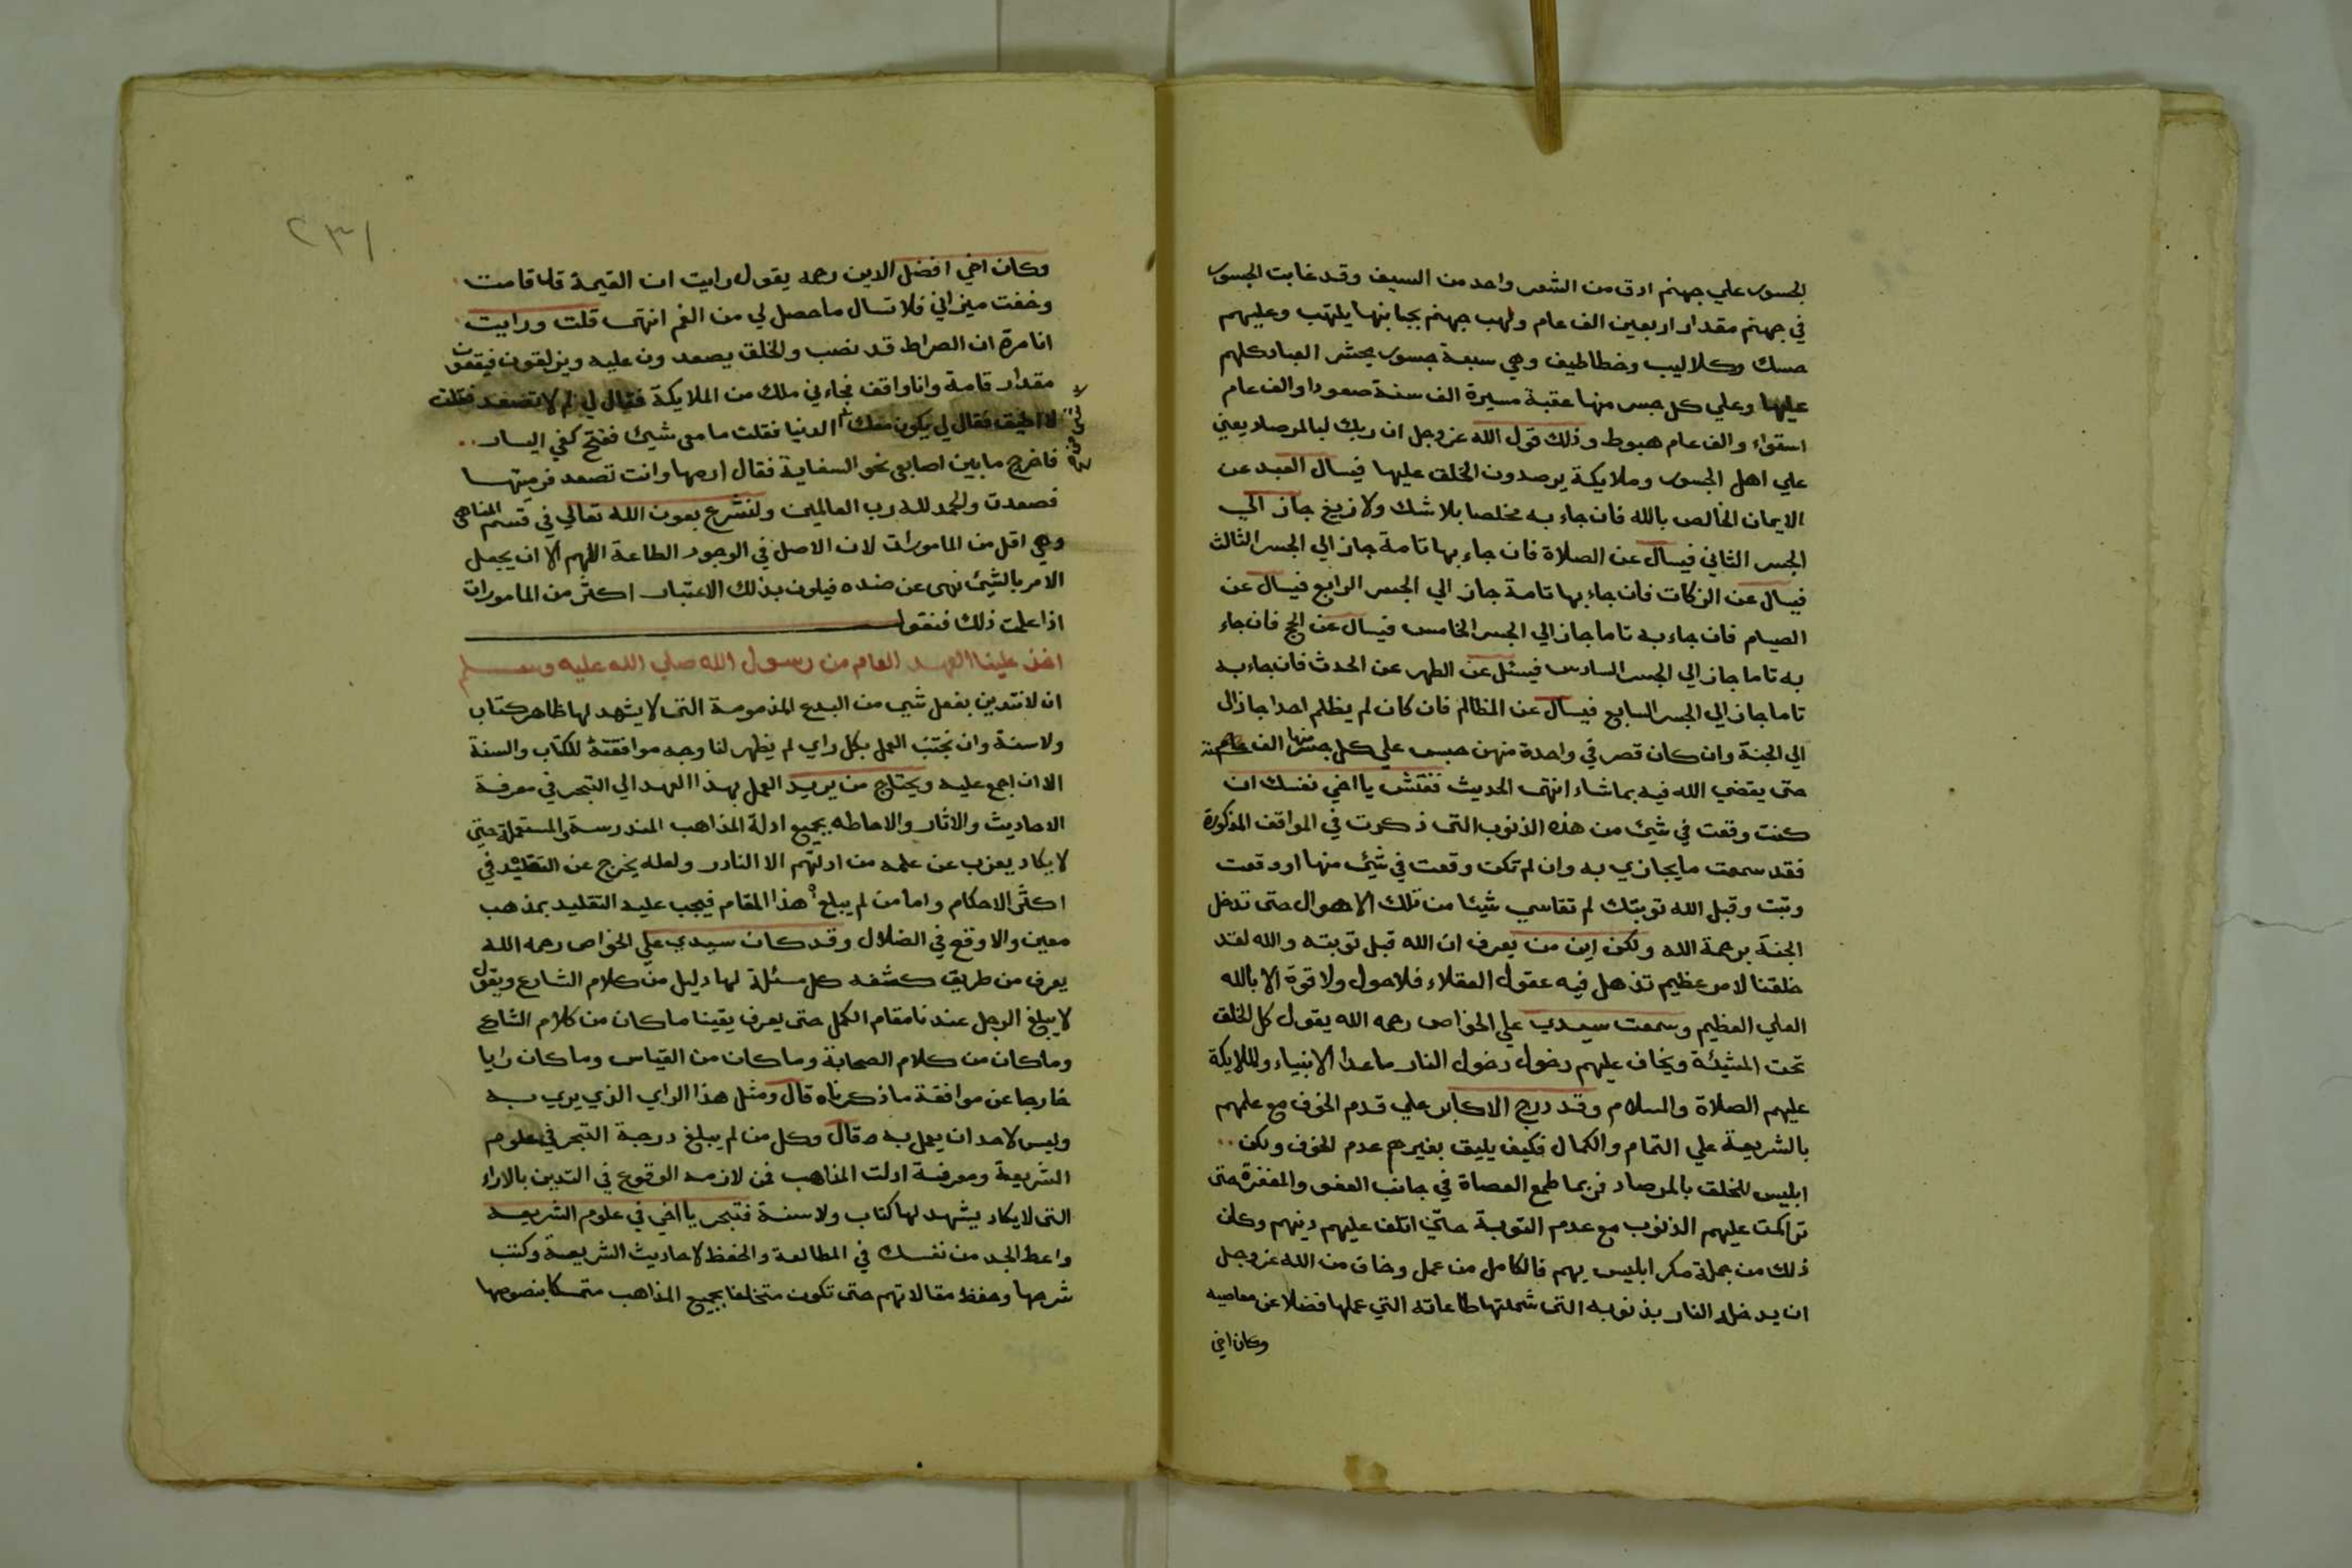 الجسور علي جهنم ادق من الشعر واحد من السيف وقد غابت الجسور
في جهنم مقدار اربعين الف عام ولهب جهنم بجانبها يلتهب وعليهم
حسك وكلاليب وخطاطيف وهي سبعة جسور يحشر العباد كلهم
عليها وعلي كل جسر منها عقبة مسيرة الف سنة صعودا والف عام
استواء والف عام هبوط وذلك قول الله عز وجل ان ربك لبالمرصاد يعني
علي اهل الجسور وملايكة يرصدون الخلق عليها فيسال العبد عن
الايمان الخالص بالله فان جاء به مخلصا بلا شك ولا زيغ جاز الي
الجسر الثاني فيسال عن الصلاة فان جاء بها تامة جاز الي الجسر الثالث
فيسال عن الزكات فان جاء بها تامة جاز الي الجسر الرابع فيسال عن
الصيام فان جاء به تاما جاز الي الجسر الخامس فيسال عن الحج فان جاء
به تاما جاز الي الجسر السادس فيسئل عن الطهر عن الحدث فان جاء به
تاما جاز الي الجسر السابع فيسال عن المظالم فان كان لم يظلم احدا جاز الي
الي الجنة وان كان قصر في واحدة منهن حبس علي كل جسر منها الف سنة
حتى يقضي الله فيه بما شاء انتهى الحديث ففتش يا اخي نفسك ان
كنت وقعت في شيئ من هذه الذنوب التى ذكرت في المواقف المذكورة
فقد سمعت ما يجازي به وان لم تكن وقعت في شيئ منها او وقعت
وتبت وقبل الله توبتك لم تقاسي شيئا من تلك الاهوال حتى تدخل
الجنة برحمة الله ولكن اين من يعرف ان الله قبل توبته والله لقد
خلقنا لامر عظيم تذهل فيه عقول العقلاء فلا حول ولا قوة الا بالله
العلي العظيم وسمعت سيدي علي الخواص رحمه الله يقول كل الخلق
تحت المشيئة ويخاف عليهم دخول دخول النار ما عدا الانبياء والملايكة
عليهم الصلاة والسلام وقد درج الاكابر علي قدم الخوف مع علمهم
بالشريعة علي التمام والكمال فكيف يليق بغيرهم عدم الخوف ولكن
ابليس للخلق بالمرصاد فربما طمع العصاة في جانب العفو والمغفرة حتى
تراكمت عليهم الذنوب مع عدم التوبة حتي اتلف عليهم دينهم وكان
ذلك من جملة مكر ابليس بهم فالكامل من عمل وخاف من الله عز وجل
ان يدخله النار بذنوبه التى شملتها طاعاته التي عملها فضلا عن معاصيه
وكان اخي
٢٣١
وكان اخي افضل الدين رحمه يقول رايت ان القيمة قد قامت
وخفت ميزاني فلا تسال ما حصل لي من الغم انتهى قلت ورايت
انا مرة ان الصراط قد نصب والخلق يصعدون عليه ويزلقون فيقعون
مقدار قامة وانا واقف فجاءني ملك من الملايكة فقال لي لم لا تصعد فقلت
لا اطيق فقال لي يكون معك الدنيا فقلت ما معى شيئ ففتح كفي اليسار
فاخرج ما بين اصابعى نحو السفاية فقال ارمها وانت تصعد فرميتها
فصعدت والحمد لله رب العالمين ولنشرع بعون الله تعالي في قسم المناهى
وهي اقل من المامورات لان الاصل في الوجود الطاعة اللهم الا ان يجعل
الامر بالشيئ نهى عن ضده فيكون بذلك الاعتبار اكثر من المامورات
اذا علمت ذلك فنقول
اخذ علينا العهد العام من رسول الله صلي الله عليه وسلم
ان لا نتدين بفعل شي من البدع المذمومة التى لا يشهد لها ظاهر كتاب
ولا سنة وان نجتنب العمل بكل راي لم يظهر لنا وجه موافقته للكتاب والسنة
الا ان اجمع عليه ويحتاج من يريد العمل بهذا العهد الي التبحر في معرفة
الاحاديث والاثار والاحاطه بجميع ادلة المذاهب المندرسة والمستعملة حتي
لا يكاد يعزب عن علمه من ادلتهم الا النادر ولعله يخرج عن التقليد في
اكثر الاحكام واما من لم يبلغ هذا المقام فيجب عليه التقليد بمذهب
معين والا وقع في الضلال وقد كان سيدي علي الخواص رحمه الله
يعرف من طريق كشفه كل مسئلة لها دليل من كلام الشارع ويقول
لا يبلغ الرجل عندنا مقام الكمل حتى يعرف يقينا ما كان من كلام الشارع
وما كان من كلام الصحابة وما كان من القياس وما كان رايا
خارجا عن موافقة ما ذكرناه قال ومثل هذا الراي الذي يرمي به
وليس لاحد ان يعمل به وقال وكل من لم يبلغ درجة التبحر في علوم
الشريعة ومعرفة ادلت المذاهب فمن لازمه الوقوع في التدين بالاراء
التى لا يكاد يشهد لها كتاب ولا سنة فتبحر يا اخي في علوم الشريعة
واعط الجد من نفسك في المطالعة والحفظ لاحاديث الشريعة وكتب
شرحها وحفظ مقالاتهم حتى تكون متخلقا بجميع المذاهب متمسكا بنصوصها